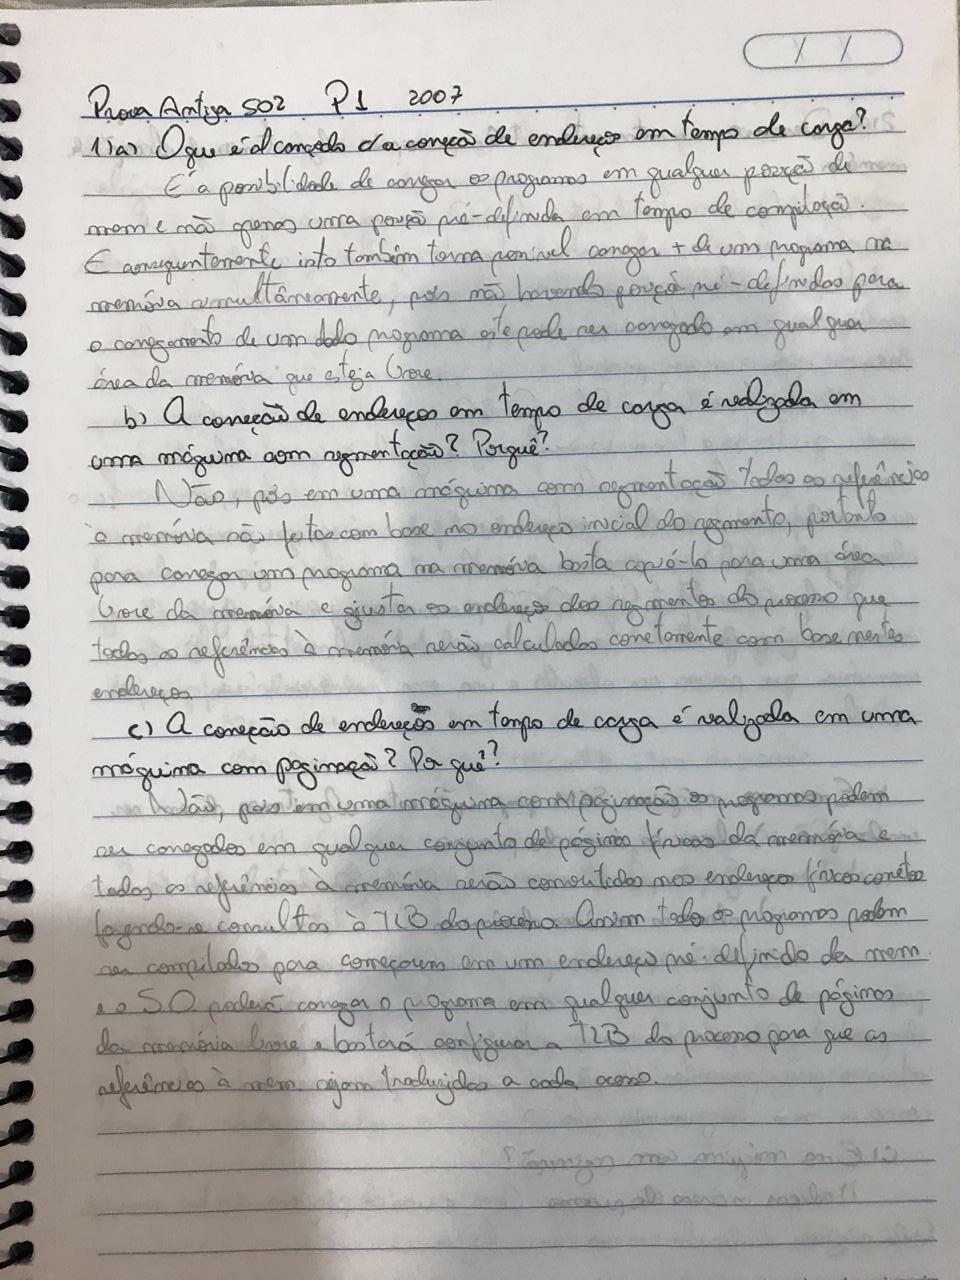 Prova Antiga SO2 P1 2007
1)a) O que é alcançado c/a correção de endereços em tempo de carga?
É a possibilidade de carregar os programas em qualquer porção de
mem e não apenas uma porção pré-definida em tempo de compilação.
E consequentemente isto também torna possível carregar + de um programa na
memória simultâneamente, pois não havendo porção pré-definidas para
o carregamento de um dado programa este pode ser carregado em qualquer
área da memória que esteja livre.
b) A correção de endereços em tempo de carga é realizada em
uma máquina com segmentação? Porquê?
Não, pois em uma máquina com segmentação todas as referências
à memória são feitas com base no endereço inicial do segmento, portanto
para carregar um programa na memória basta copiá-lo para uma área
livre da memória e ajustar os endereços dos segmentos do processo que
todas as referências à memória serão calculadas corretamente com base nestes
endereços
c) A correção de endereços em tempo de carga é realizada em uma
máquina com paginação? Por quê?
Não, pois em uma máquina com paginação os programas podem
ser carregados em qualquer conjunto de páginas físicas da memória e
todas as referências à memória serão convertidas nos endereços físicos corretos
fazendo-se consultas à TLB do processo. Assim todo os programas podem
ser compilados para começarem em um endereço pré-definido da mem.
e o SO poderá carregar o programa em qualquer conjunto de páginas
da memória livre e bastará configurar a TLB do processo para que as
referências à mem sejam traduzidas a cada acesso.